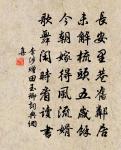 長安里巷舊鄰居
未解梳頭五歲餘
今朝嫁得風流婿
歌舞閑時看讀書
李涉贈田玉卿詞典網